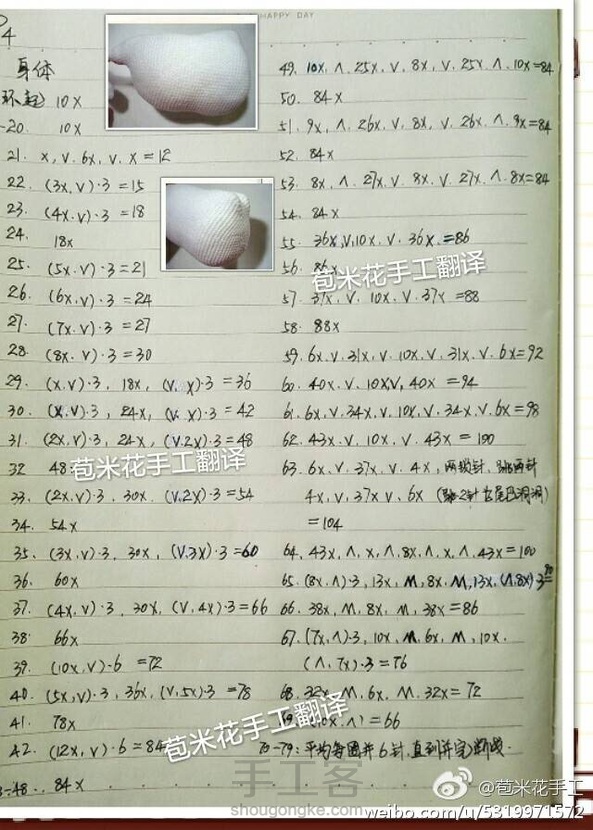 HAPPY DAY
4
身体
环起 10X
-20. 10X
21. X, V, 6X, V, X = 12
22. (3X, V)·3 = 15
23. (4X, V)·3 = 18
24. 18X
25. (5X, V)·3 = 21
26. (6X, V)·3 = 24
27. (7X, V)·3 = 27
28. (8X, V)·3 = 30
29. (X, V)·3, 18X, (V, X)·3 = 36
30. (X, V)·3, 24X, (V, X)·3 = 42
31. (2X, V)·3, 24X, (V, 2X)·3 = 48
32 48
33. (2X, V)·3, 30X, (V, 2X)·3 = 54
34. 54X
35. (3X, V)·3, 30X, (V, 3X)·3 = 60
36. 60X
37. (4X, V)·3, 30X, (V, 4X)·3 = 66
38. 66X
39. (10X, V)·6 = 72
40. (5X, V)·3, 36X, (V, 5X)·3 = 78
41. 78X
42. (12X, V)·6 = 84
-48. 84X
49. 10X, Λ, 25X, V, 8X, V, 25X, Λ, 10X = 84
50. 84X
51. 9X, Λ, 26X, V, 8X, V, 26X, Λ, 9X = 84
52. 84X
53. 8X, Λ, 27X, V, 8X, V, 27X, Λ, 8X = 84
54. 84X
55. 36X, V, 10X, V, 36X, = 86
56. 86X
57. 37X, V, 10X, V, 37X = 88
58. 88X
59. 6X, V, 31X, V, 10X, V, 31X, V, 6X = 92
60. 40X, V, 10X, V, 40X = 94
61. 6X, V, 34X, V, 10X, V, 34X, V, 6X = 98
62. 43X, V, 10X, V, 43X = 100
63. 6X, V, 37X, V, 4X, 两锁针, 跳两针
4X, V, 37X, V, 6X (跳2针 尾巴洞洞)
= 104
64. 43X, Λ, X, Λ, 8X, Λ, X, Λ, 43X = 100
65. (8X, Λ)·3, 13X, M, 8X, M, 13X, (Λ, 8X)·3 = 90
66. 38X, M, 8X, M, 38X = 86
67. (7X, Λ)·3, 10X, M, 6X, M, 10X,
(Λ, 7X)·3 = 76
68. 32X, M, 6X, M, 32X = 72
Λ) = 66
70-79: 平均每圈并6针, 直到并完, 断线.
苞米花手工翻译
苞米花手工翻译
苞米花手工翻译
手工客
shougongke.com
@苞米花手工
weibo.com/u/5319971572